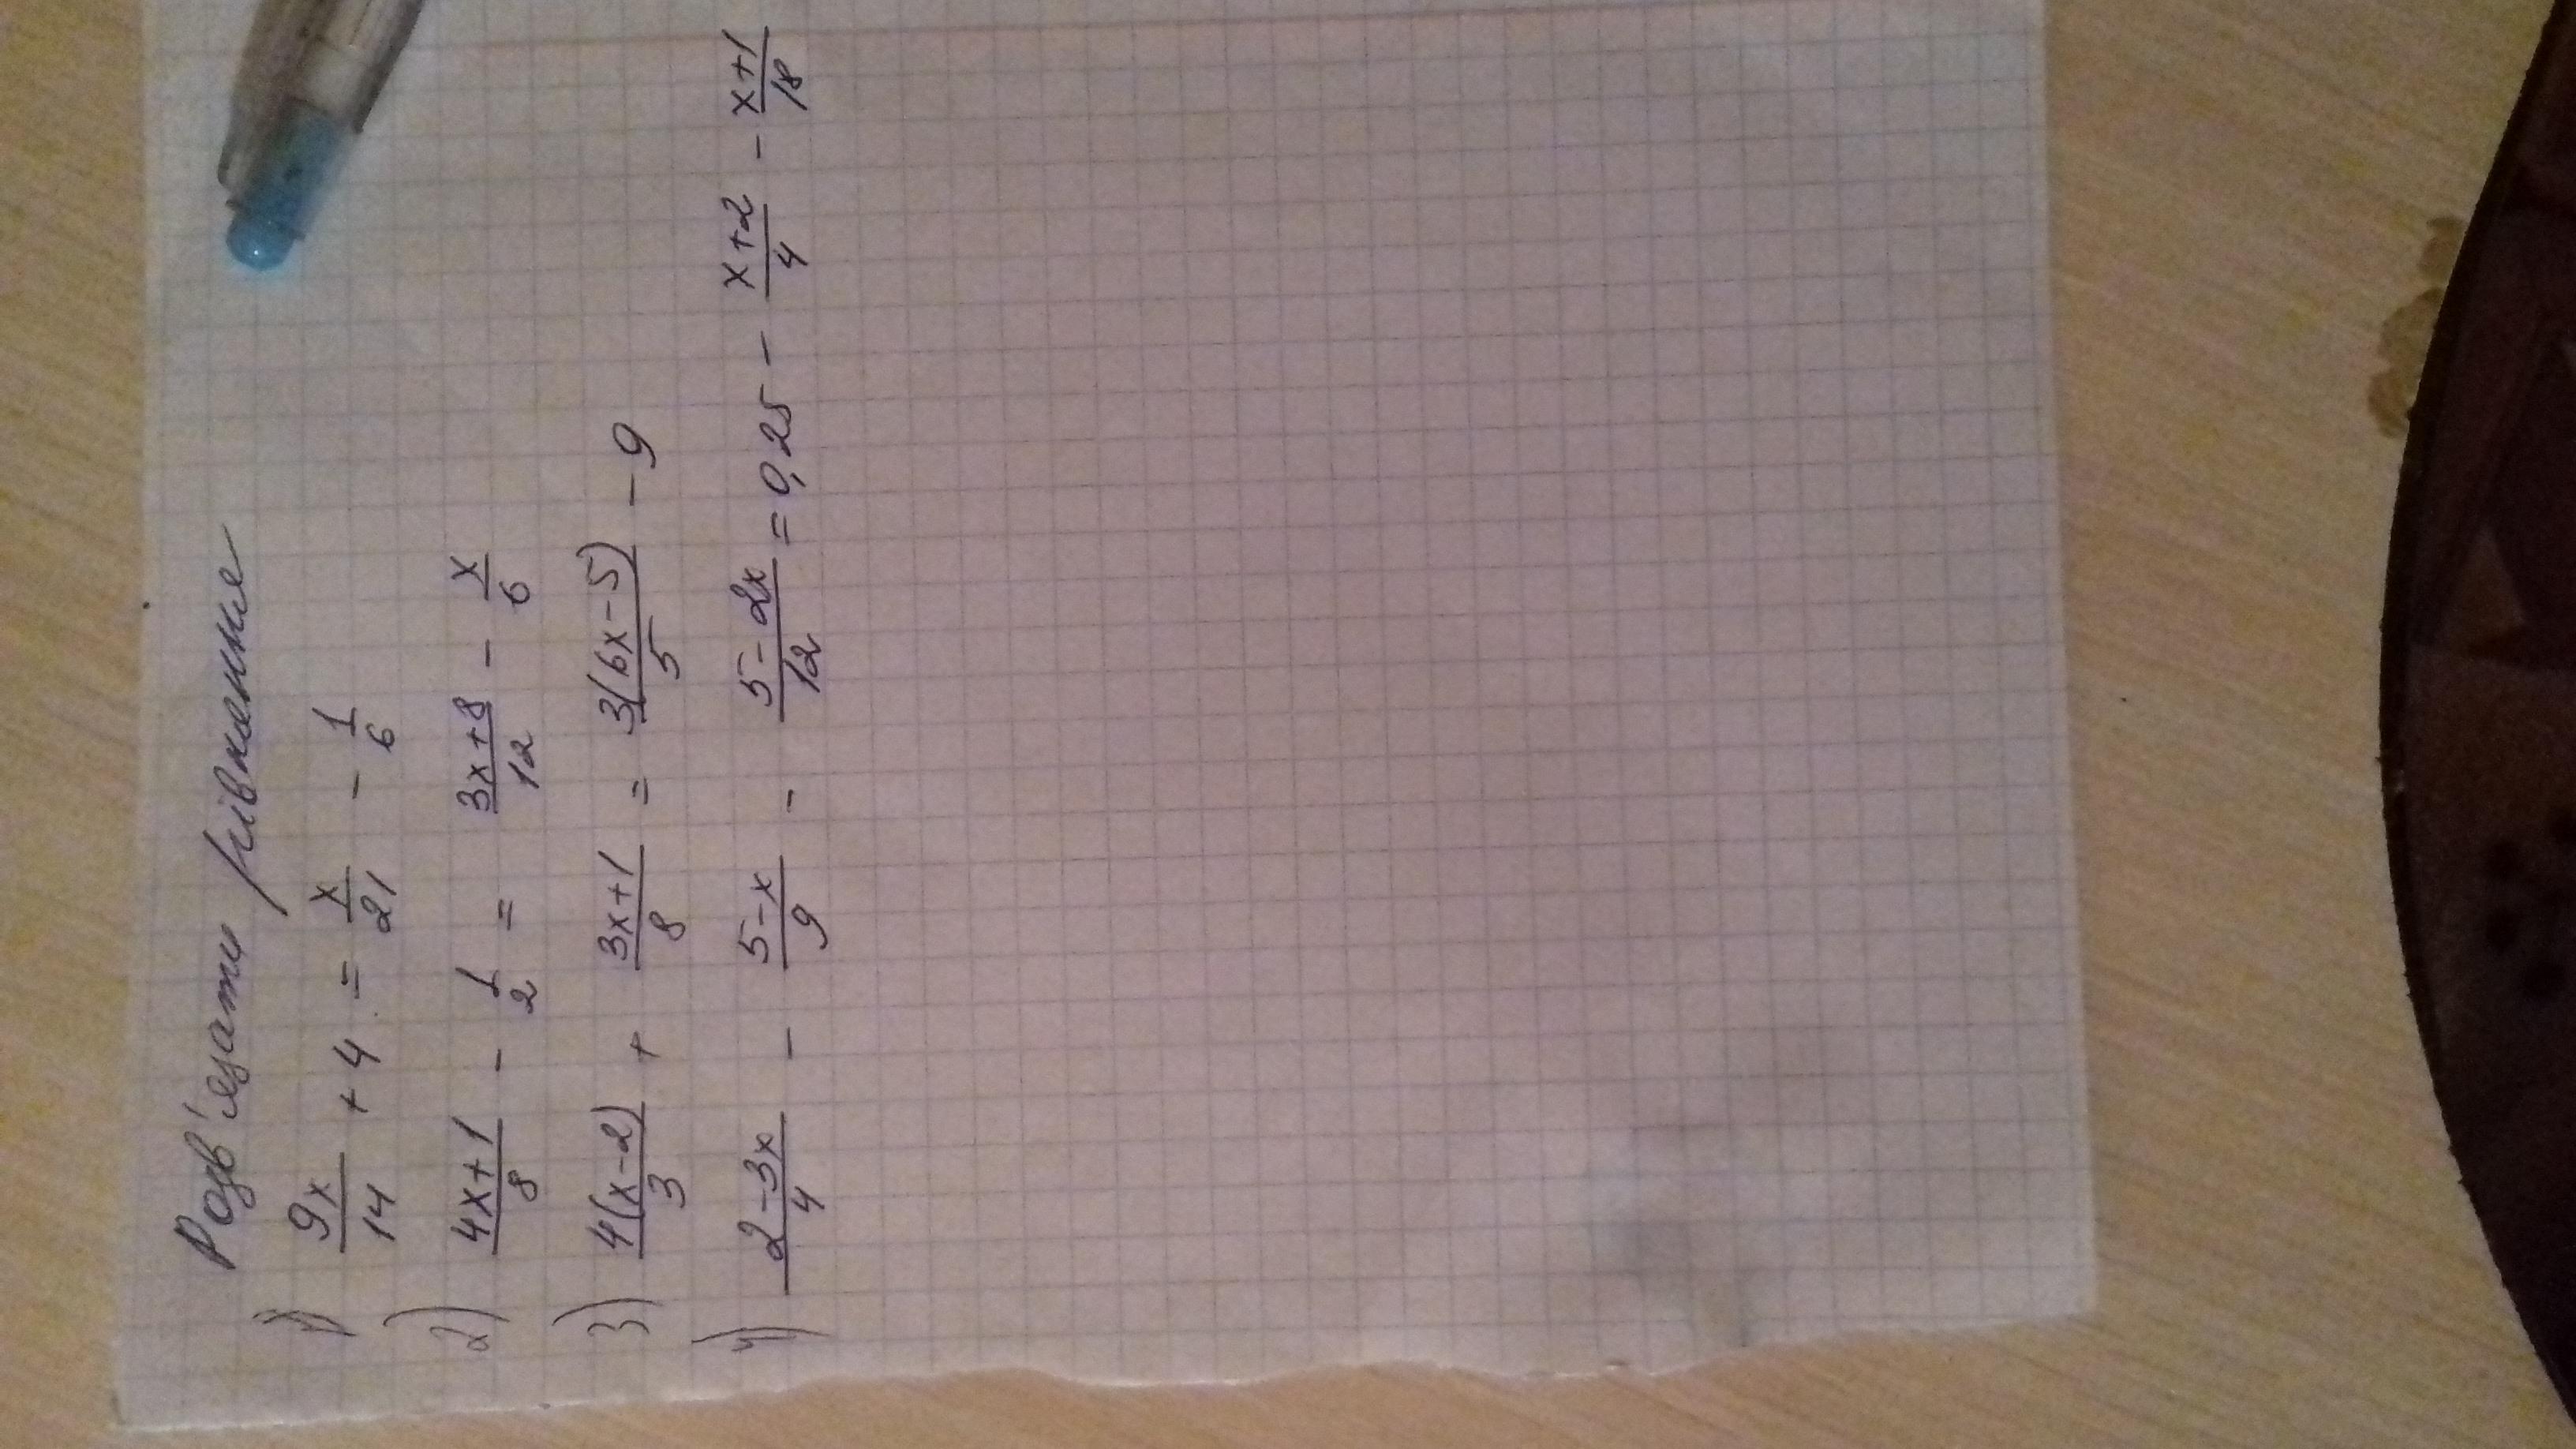 Розв'язати рівняння
1) 9x/14 + 4 = x/21 - 1/6
2) 4x+1/8 - 1/2 = 3x+8/12 - x/6
3) 4(x-2)/3 + 3x+1/8 = 3(6x-5)/5 - 9
4) 2-3x/4 - 5-x/9 - 5-2x/12 = 0,25 - x+2/4 - x+1/18